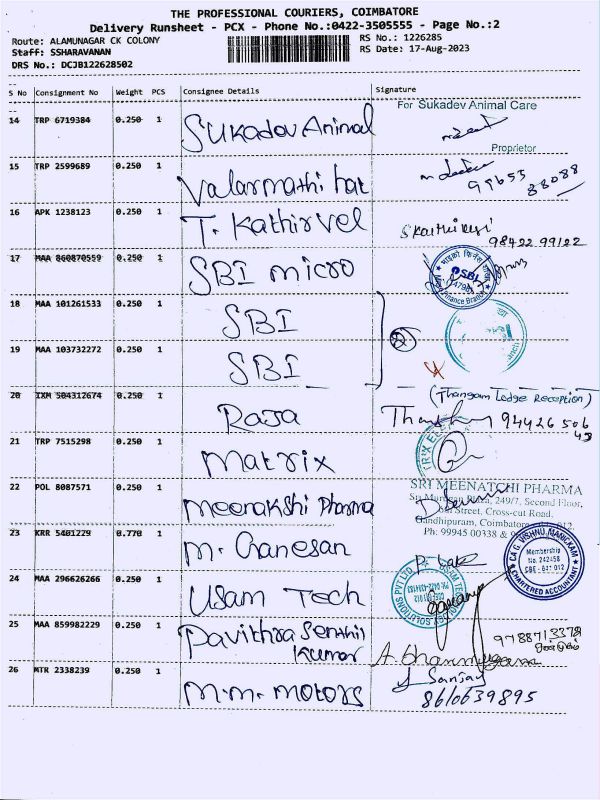 THE PROFESSIONAL COURIERS, COIMBATORE
Delivery Runsheet - PCX - Phone No.:0422-3505555 - Page No.:2
Route: ALAMUNAGAR CK COLONY
RS No.: 1226285
Staff: SSHARAVANAN
RS Date: 17-Aug-2023
DRS No.: DCJB122628502
S No Consignment No Weight PCS Consignee Details Signature
14 TRP 6719384 0.250 1 Sukadev Animal
For Sukadev Animal Care
Proprietor
15 TRP 2599689 0.250 1 Valarmathi
99653 88088
16 APK 1238123 0.250 1 T. Kathirvel
98422 99122
17 MAA 860870559 0.250 1 SBI micro
SBI
18 MAA 101261533 0.250 1 SBI
19 MAA 103732272 0.250 1 SBI
20 IXM 504312674 0.250 1 Raja
(Thangam Lodge Reception)
94426 506
21 TRP 7515298 0.250 1 Matrix
22 POL 8087571 0.250 1 Meenakshi Pharma
SRI MEENATCHI PHARMA
Plaza, 249/7, Second Floor,
Street, Cross-cut Road,
Gandhipuram, Coimbatore
Ph: 99945 00338 &
23 KRR 5401229 0.770 1 M. Ganesan
CA G. VISHNU MANICKAM
Membership
No. 242458
CBE - 641 012
CHARTERED ACCOUNTANT
24 MAA 296626266 0.250 1 Usam Tech
SOLUTIONS PVT LTD
25 MAA 859982229 0.250 1 Pavithra Senthil
Kumar
26 MTR 2338239 0.250 1 M.M. Motors
Sanjay
8610639895